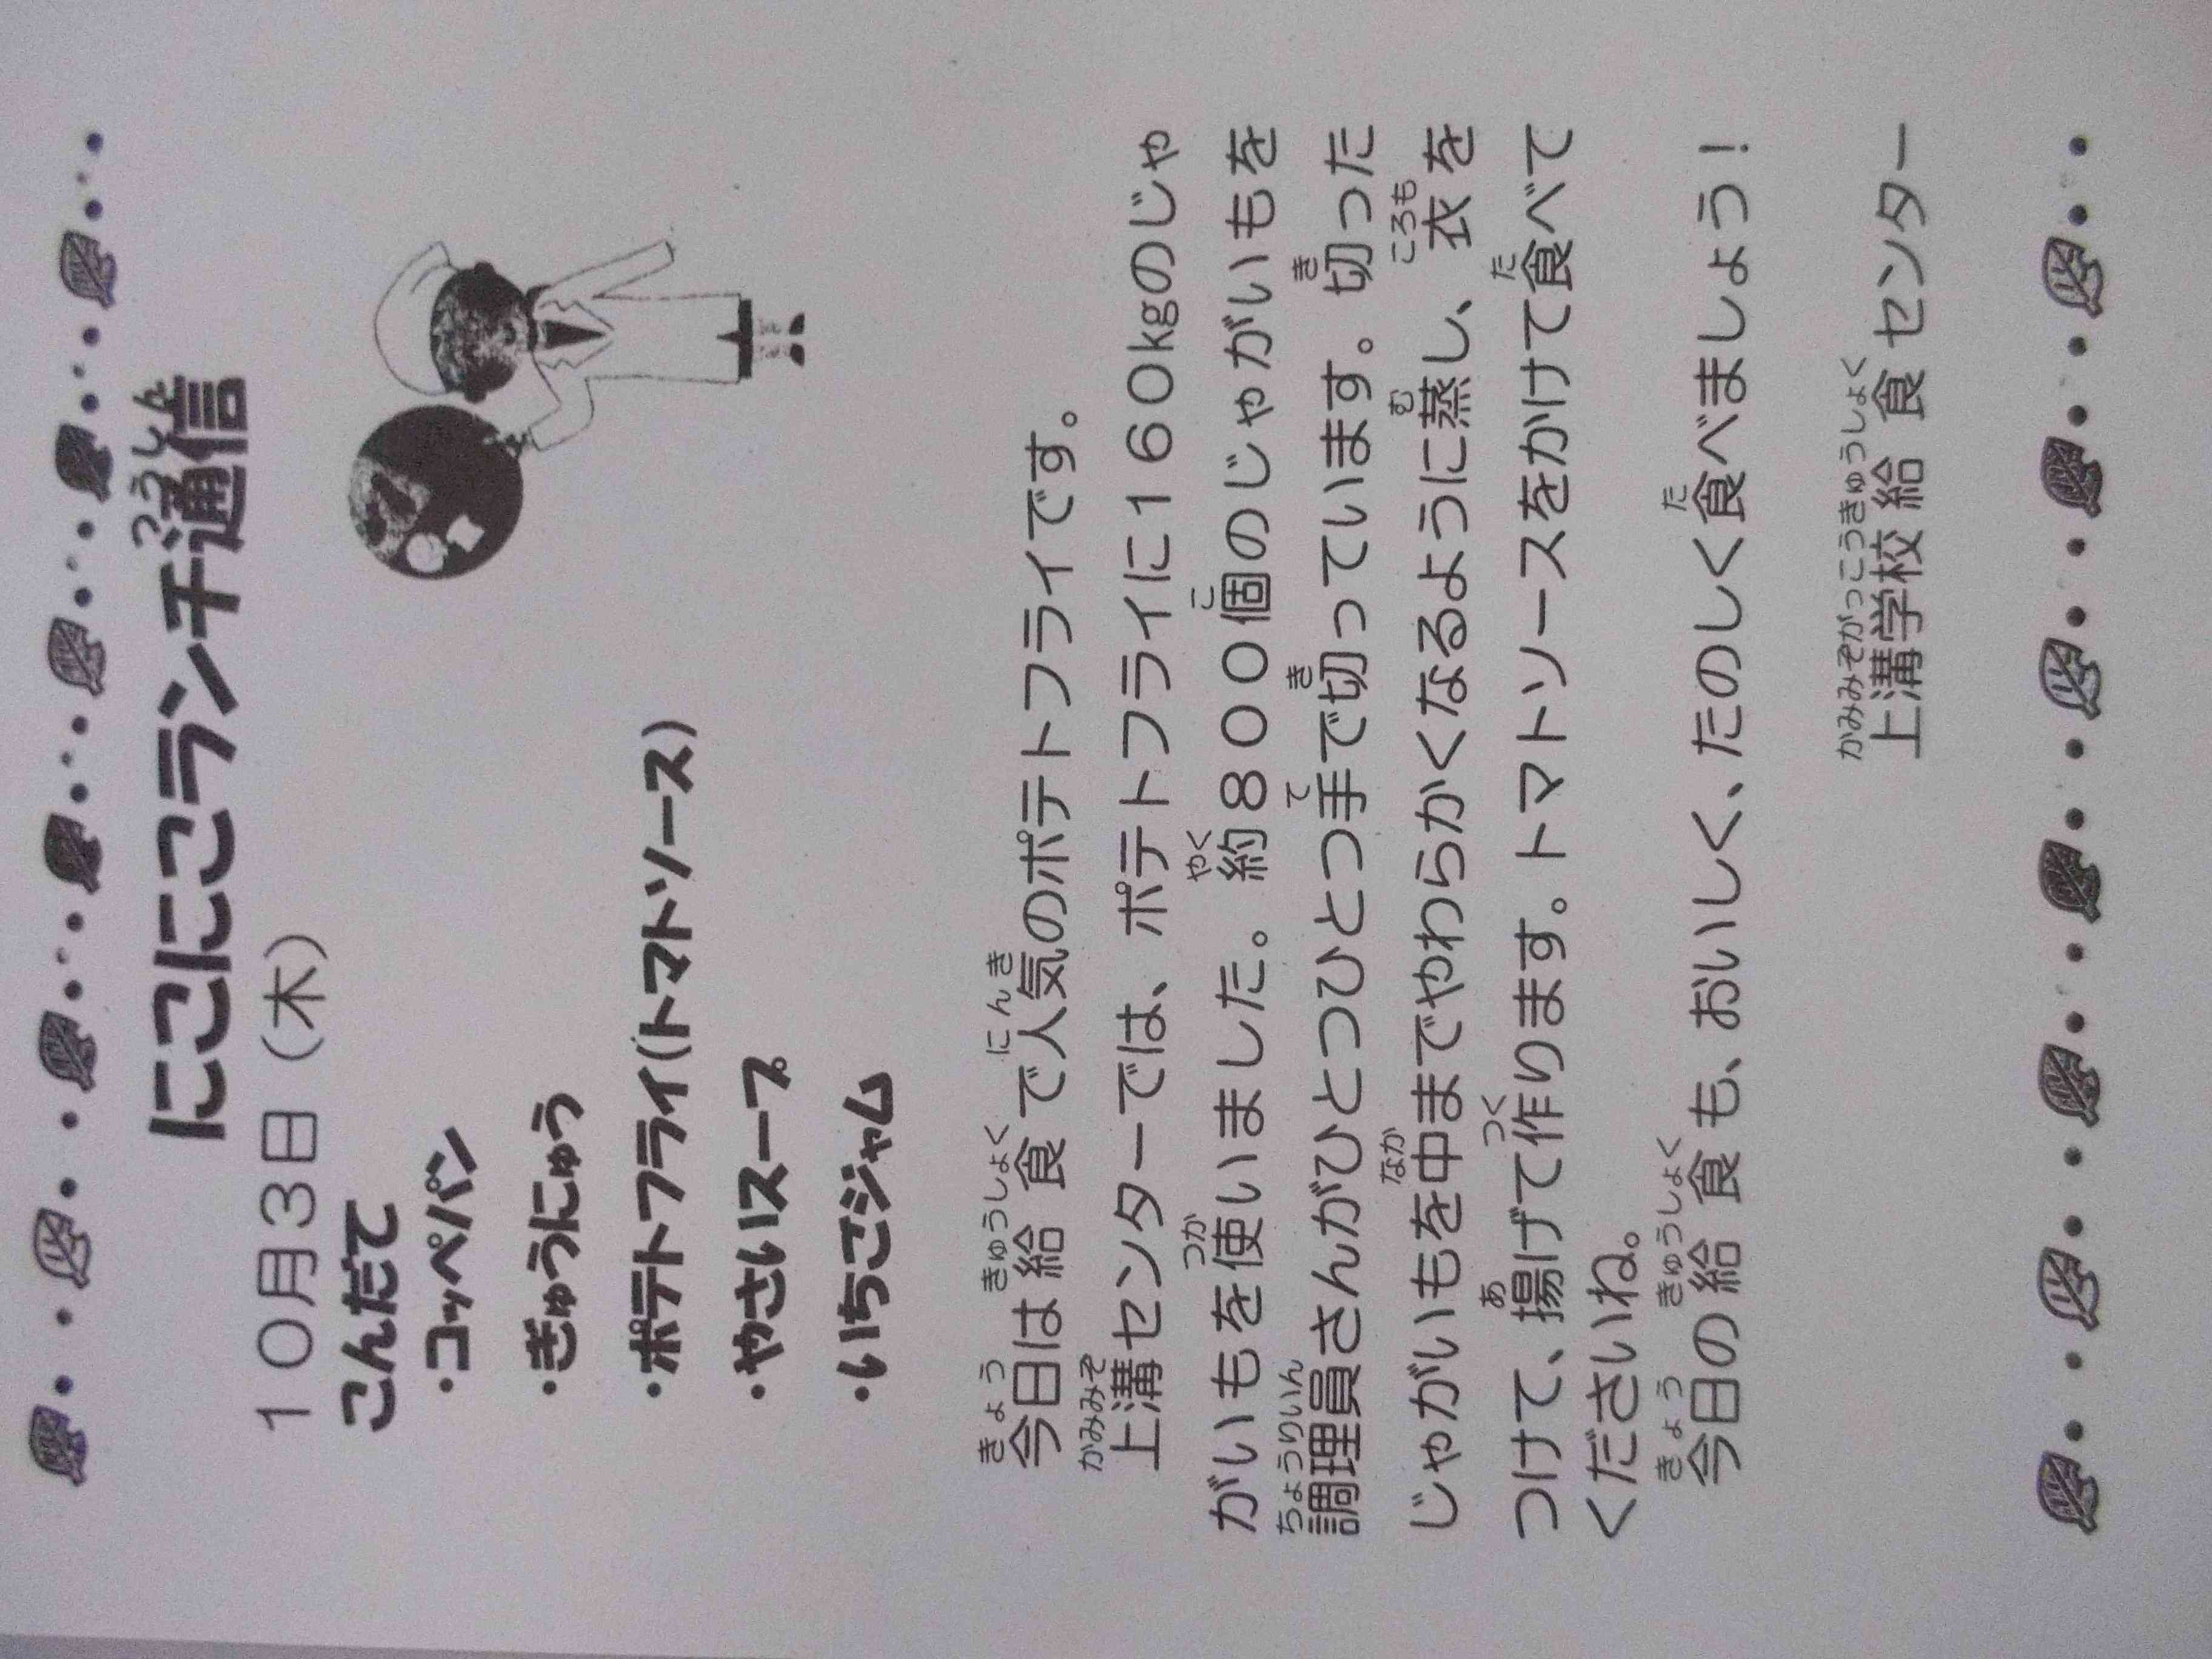 にこにこランチ通信
１０月３日（木）
こんだて
・コッペパン
・ぎゅうにゅう
・ポテトフライ(トマトソース)
・やさいスープ
・いちごジャム
今日は給食で人気のポテトフライです。
上溝センターでは、ポテトフライに１６０kgのじゃ
がいもを使いました。約８００個のじゃがいもを
調理員さんがひとつひとつ手で切っています。切った
じゃがいもを中までやわらかくなるように蒸し、衣を
つけて、揚げて作ります。トマトソースをかけて食べて
くださいね。
今日の給食も、おいしく、たのしく食べましょう！
上溝学校給食センター